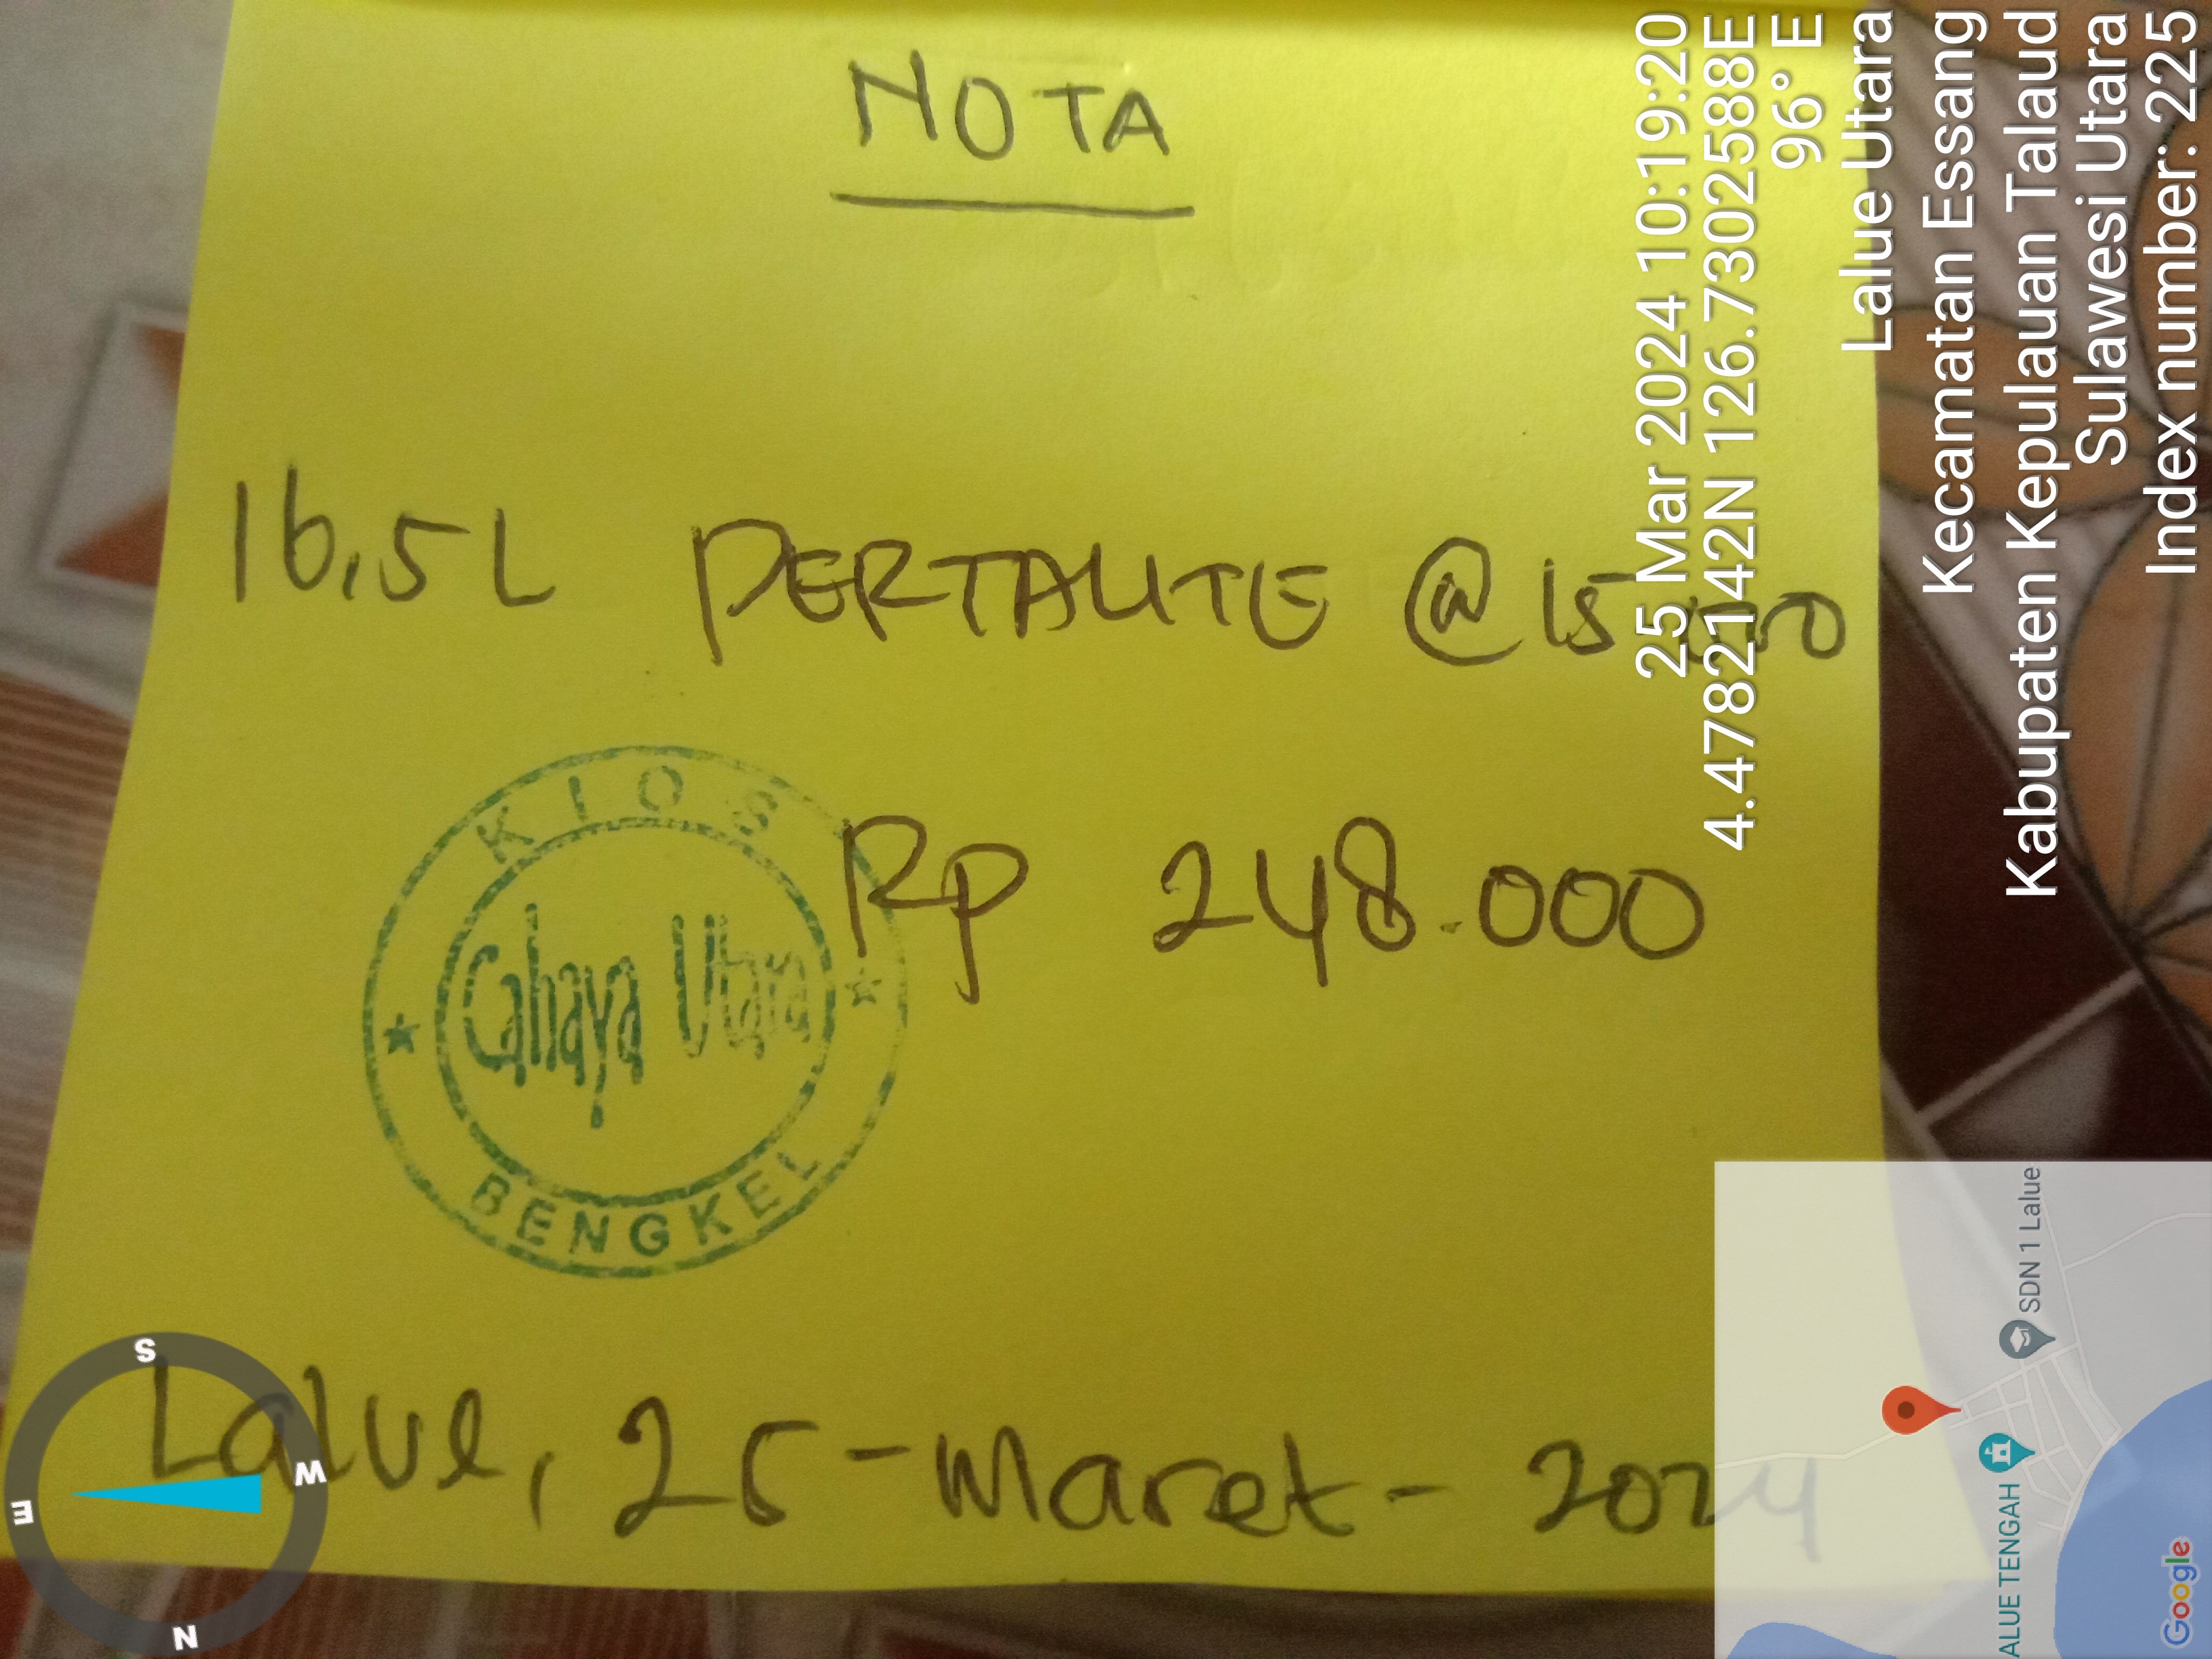 NOTA
16,5 L PERTALITE @ 15.000
Rp 248.000
KIOS
Cahaya Utara
BENGKEL
Lalue, 25 - Maret - 2024
25 Mar 2024 10:19:20
4.4782142N 126.73025588E
96° E
Lalue Utara
Kecamatan Essang
Kabupaten Kepulauan Talaud
Sulawesi Utara
Index number: 225
S
W
E
N
SDN 1 Lalue
ALUE TENGAH
Google